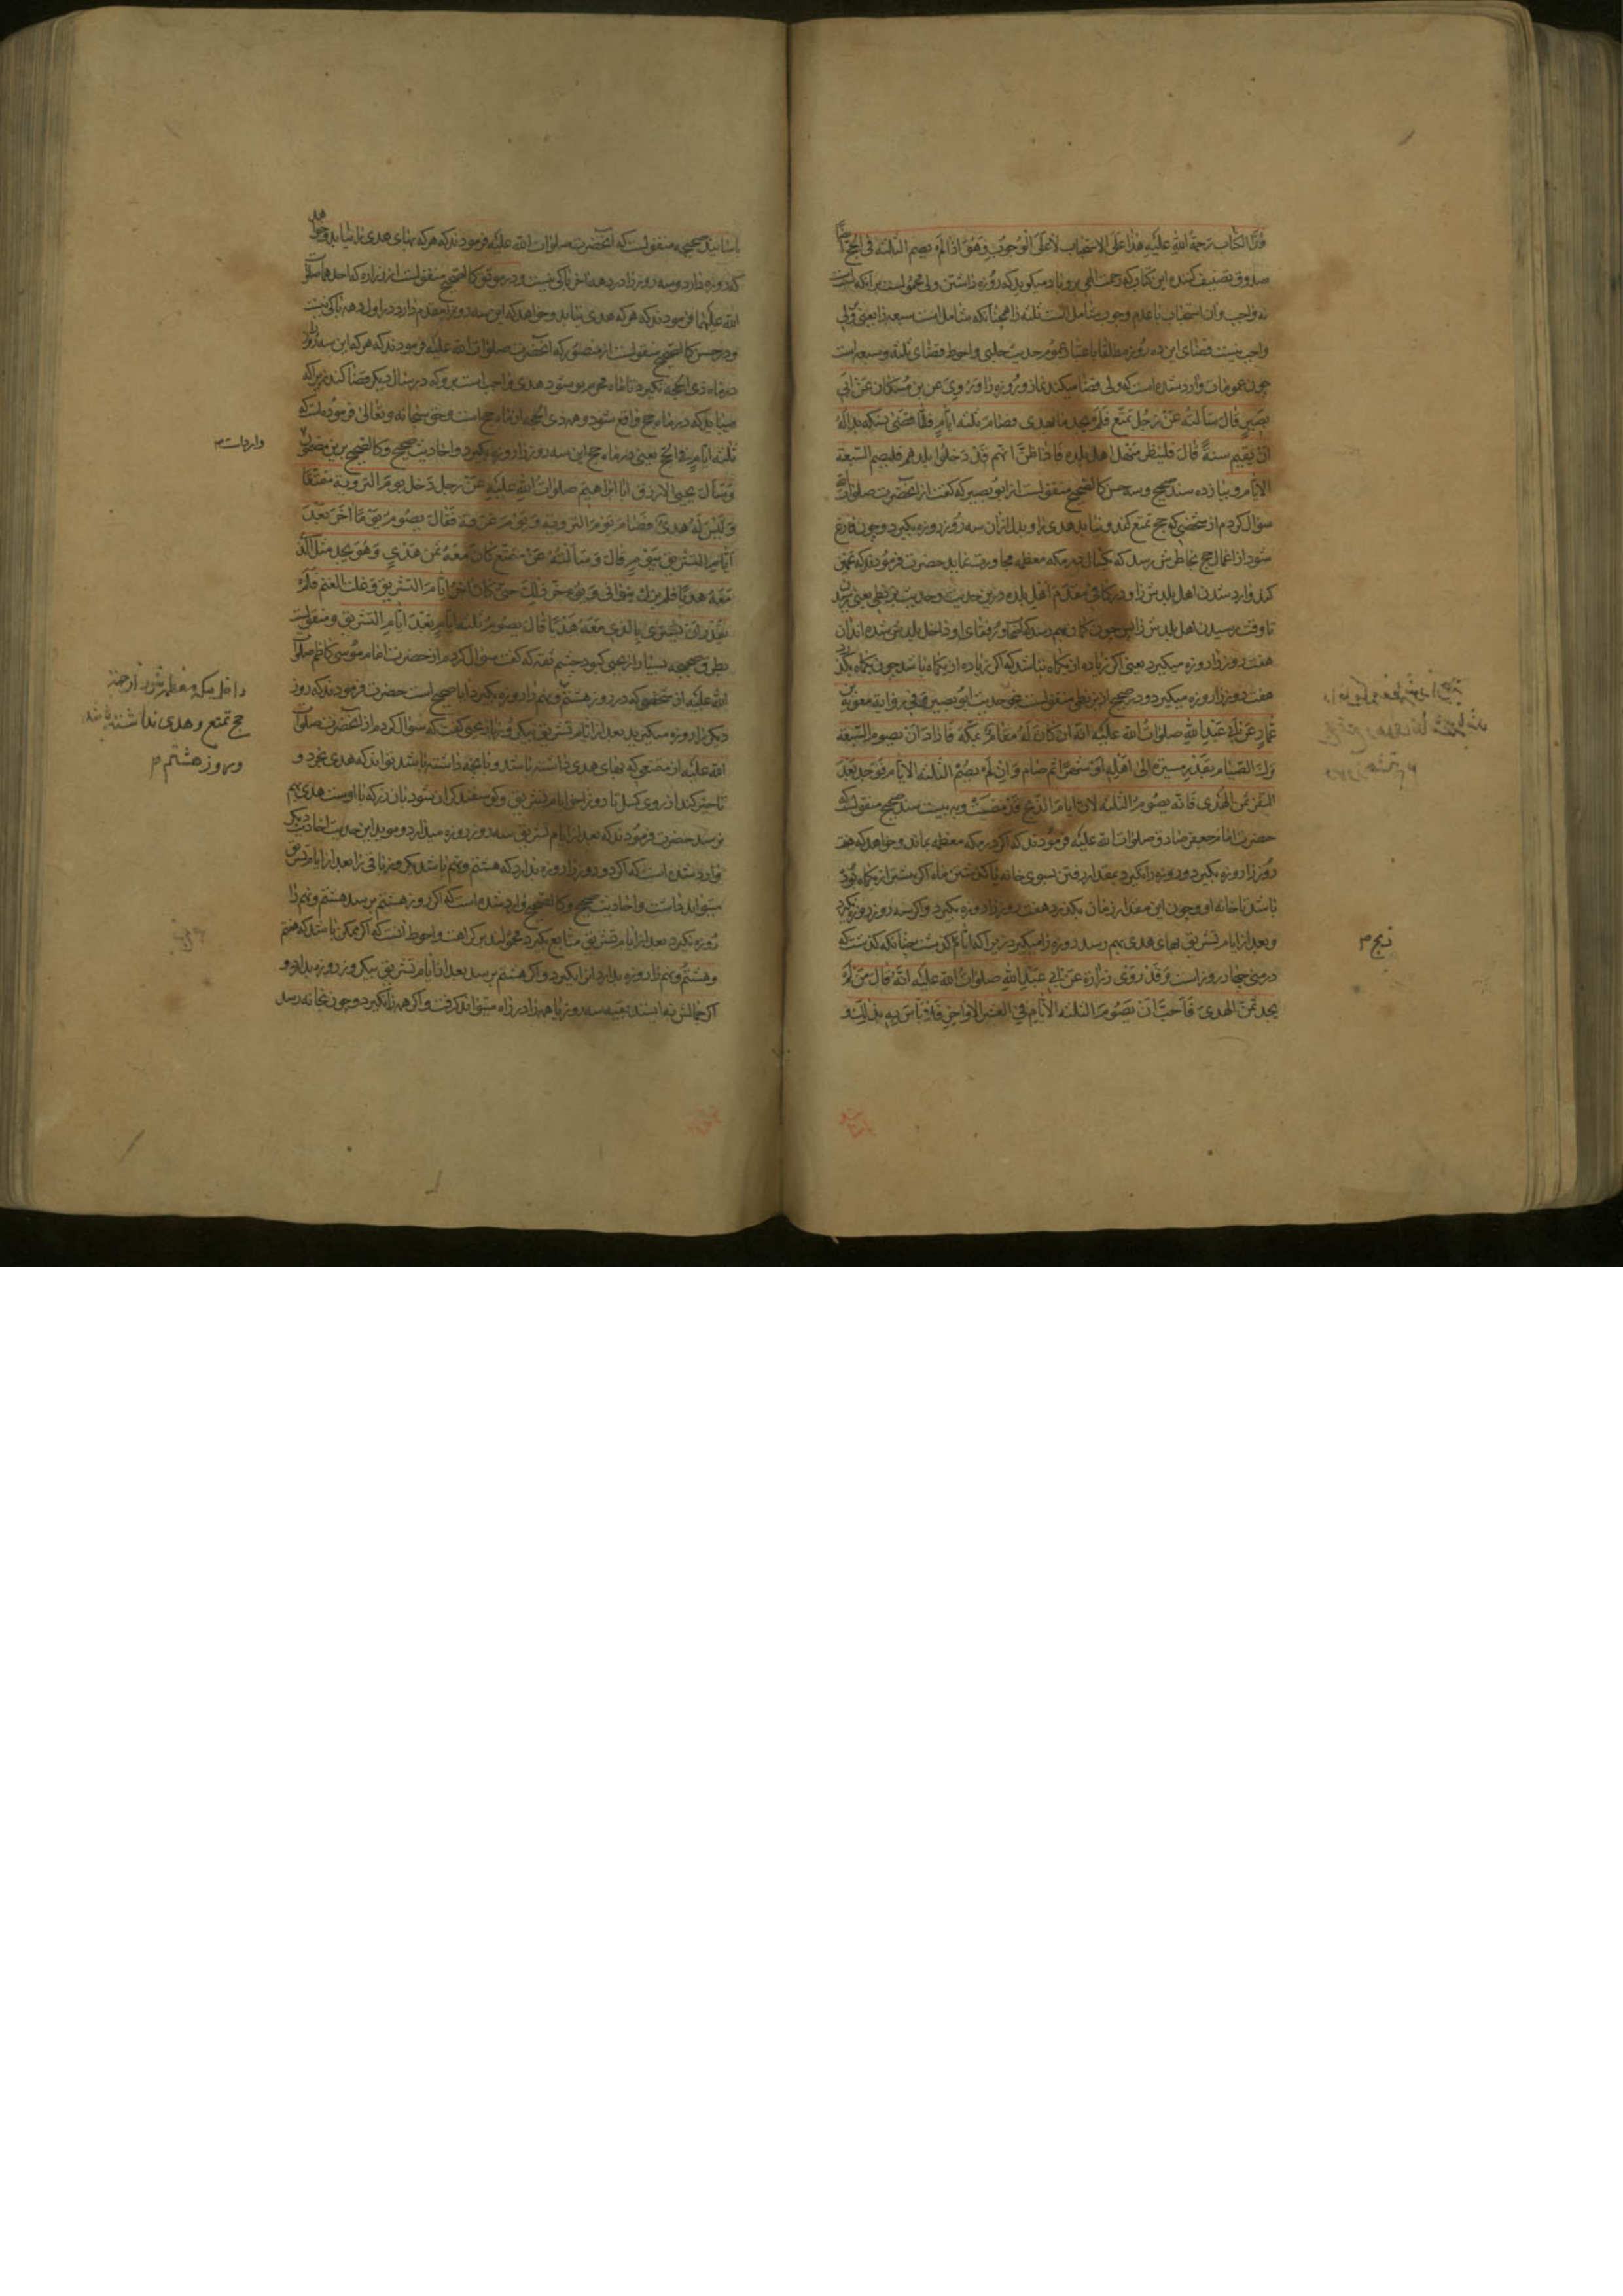 هذا الکتاب رحمة الله علیه هذا علی الاستحباب لا علی الوجوب وهو اذا لم یصم الثلثة فی الحج ایضا
صدوق تصنیف کننده این کتاب که رحمت الهی برو باد میکوید که روزه داشتن ولی محمولست برانکه سنت است
نه واجب وان استحباب با عدم وجوب شامل است ثلثه را همچنانکه شامل است سبعه را یعنی بر ولی
واجب نیست قضای این ده روز مطلقا باعتبار عموم حدیث حلبی واحوط قضای ثلثه وسبعه است
چون عمومات وارد شده است که ولی قضا میکند نماز وروزه را وروی عن بن مسکان عن ابی
بصیر قال سألته عن رجل تمتع فلم یجد ما یهدی فصام ثلثة ایام فلما قضی نسکه بدا له
ان یقیم سنة قال فلینظر منهل اهل بلده فاذا ظن انهم قد دخلوا بلدهم فلیصم السبعة
الایام و بیازده سند صحیح وسه حسن کالصحیح منقولست از ابو بصیر که کفت از آنحضرت صلوات الله
سؤال کردم از شخصی که حج تمتع کند ونیابد هدی را وبدل ازان سه روز روزه بکیرد وچون فارغ
شود از اعمال حج بخاطرش رسد که یکسال در مکه معظمه مجاورت نماید حضرت فرمودند که
کند وارد شدن اهل بلدش را ودر کافی مقدم اهل بلده ودرین حدیث وحدیث بزنطی یعنی
تا وقت رسیدن اهل بلدش را پس چون کمان بهم رسد که آنها ورفقای او داخل بلدش شده اند ان
هفت روز را روزه میکیرد یعنی اکر زیاده از یکماه نباشد که اکر زیاده از یکماه باشد چون یکماه بکذرد
هفت روز را روزه میکیرد ودر صحیح از بزنطی منقولست نحو حدیث ابو بصیر وفی روایة معویة بن
عمار عن ابی عبد الله صلوات الله علیه انه ان کان له مقام بمکة فاراد ان یصوم السبعة
ترک الصیام بقدر مسیره الی اهله او شهرا ثم صام وان لم یصم الثلثة الایام فوجد بعد
النفر ثمن الهدی فانه یصوم الثلثة لان ایام الذبح قد مضت وبه بیست سند صحیح منقولست که
حضرت امام جعفر صادق صلوات الله علیه فرمودند که اکر در مکه معظمه بماند وخواهد که هفت
روز را روزه بکیرد وروزه را نکیرد بمقدار رفتن بسوی خانه یا کذشتن ماه اکر بیشتر از یکماه بوده
باشد تا خانه او وچون این مقدار زمان بکذرد هفت روز را روزه بکیرد واکر سه روز روزه نکیرد
وبعد از ایام تشریق بهای هدی بهم رسد روزه را میکیرد زیرا که ایام کذشت چنانکه کذشت که
در منی چهار روز است وقد روی زرارة عن ابی عبد الله صلوات الله علیه انه قال من لم
یجد ثمن الهدی فاحب ان یصوم الثلثة الایام فی العشر الاواخر فلا باس به بذلک و
ذبح م
باسانید صحیحه منقولست که آنحضرت صلوات الله علیه فرمودند که هر که بهای هدی را نیابد وخواهد
که روزه دارد وسه روز را در دهه آخر باکی نیست ودر موثق کالصحیح منقولست از زراره که احدهما صلوات
الله علیهما فرمودند که هر که هدی نیابد وخواهد که این سه روز را مقدم دارد در اول دهه باکی نیست
ودر حسن کالصحیح منقولست از منصور که آنحضرت صلوات الله علیه فرمودند که هر که این سه روز را
در ماه ذی الحجه نکیرد تا ماه محرم نو شود هدی واجب است برو که در سال دیکر قضا کند زیرا که
میباید که در ماه حج واقع شود وهمه ذی الحجه از ماه حج است وحق سبحانه وتعالی فرموده است که
ثلثة ایام فی الحج یعنی در ماه حج این سه روز را روزه بکیرد واحادیث صحیح وکالصحیح برین مضمون
واردات م
وسأل یحیی الازرق ابا ابراهیم صلوات الله علیه عن رجل دخل یوم الترویة متمتعا
ولیس له هدی فصام یوم الترویة ویوم عرفة فقال یصوم یوما آخر بعد
ایام التشریق بیوم قال وسألته عن متمتع کان معه ثمن هدی وهو یجد مثل الذی
معه هدیا فلم یزل یتوانی ویؤخر ذلک حتی کان آخر ایام التشریق وغلت الغنم فلم
یقدر ان یشتری بالذی معه هدیا قال یصوم ثلثة ایام بعد ایام التشریق ومنقولست
بطرق صحیحه بسیار از یحیی کبود چشم ثقه که کفت سوال کردم از حضرت امام موسی کاظم صلوات
الله علیه از شخصی که در روز هشتم ونهم را روزه بکیرد ایا صحیح است حضرت فرمودند که روز
داخل مکه معظمه شود از جهة
حج تمتع وهدی نداشته باشد
وروز هشتم م
دیکر را روزه میکیرد بعد از ایام تشریق بیکروز ویحیی کفت که سؤال کردم از آنحضرت صلوات
الله علیه از متمتعی که بهای هدی داشته باشد وبا آنچه داشته باشد تواند که هدی بخرد و
تاخیر کند از روی کسل تا روز اخر ایام تشریق وکوسفند کران شود بآن زر که با اوست هدی بهم
نرسد حضرت فرمودند که بعد از ایام تشریق سه روز روزه میدارد وموید این حدیث احادیث دیکر
وارد شده است که اکر دو روز را روزه بدارد که هشتم ونهم باشد یکروز باقی را بعد از ایام تشریق
میتواند داشت واحادیث صحیح وکالصحیح وارد شده است که اکر روز هشتم برسد هشتم ونهم را
روزه نکیرد بعد از ایام تشریق متتابع بکیرد محمولند بر کراهت واحوط آنست که اکر ممکن باشد که هفتم
وهشتم ونهم را روزه بدارد انرا بکیرد واکر هشتم برسد بعد از ایام تشریق بیکروز روزه بدارد و
اکر جمالش نه ایستد بقیه سه روز یا همه را در راه میتواند کرفت واکر همه را نکیرد وچون بخانه رسد